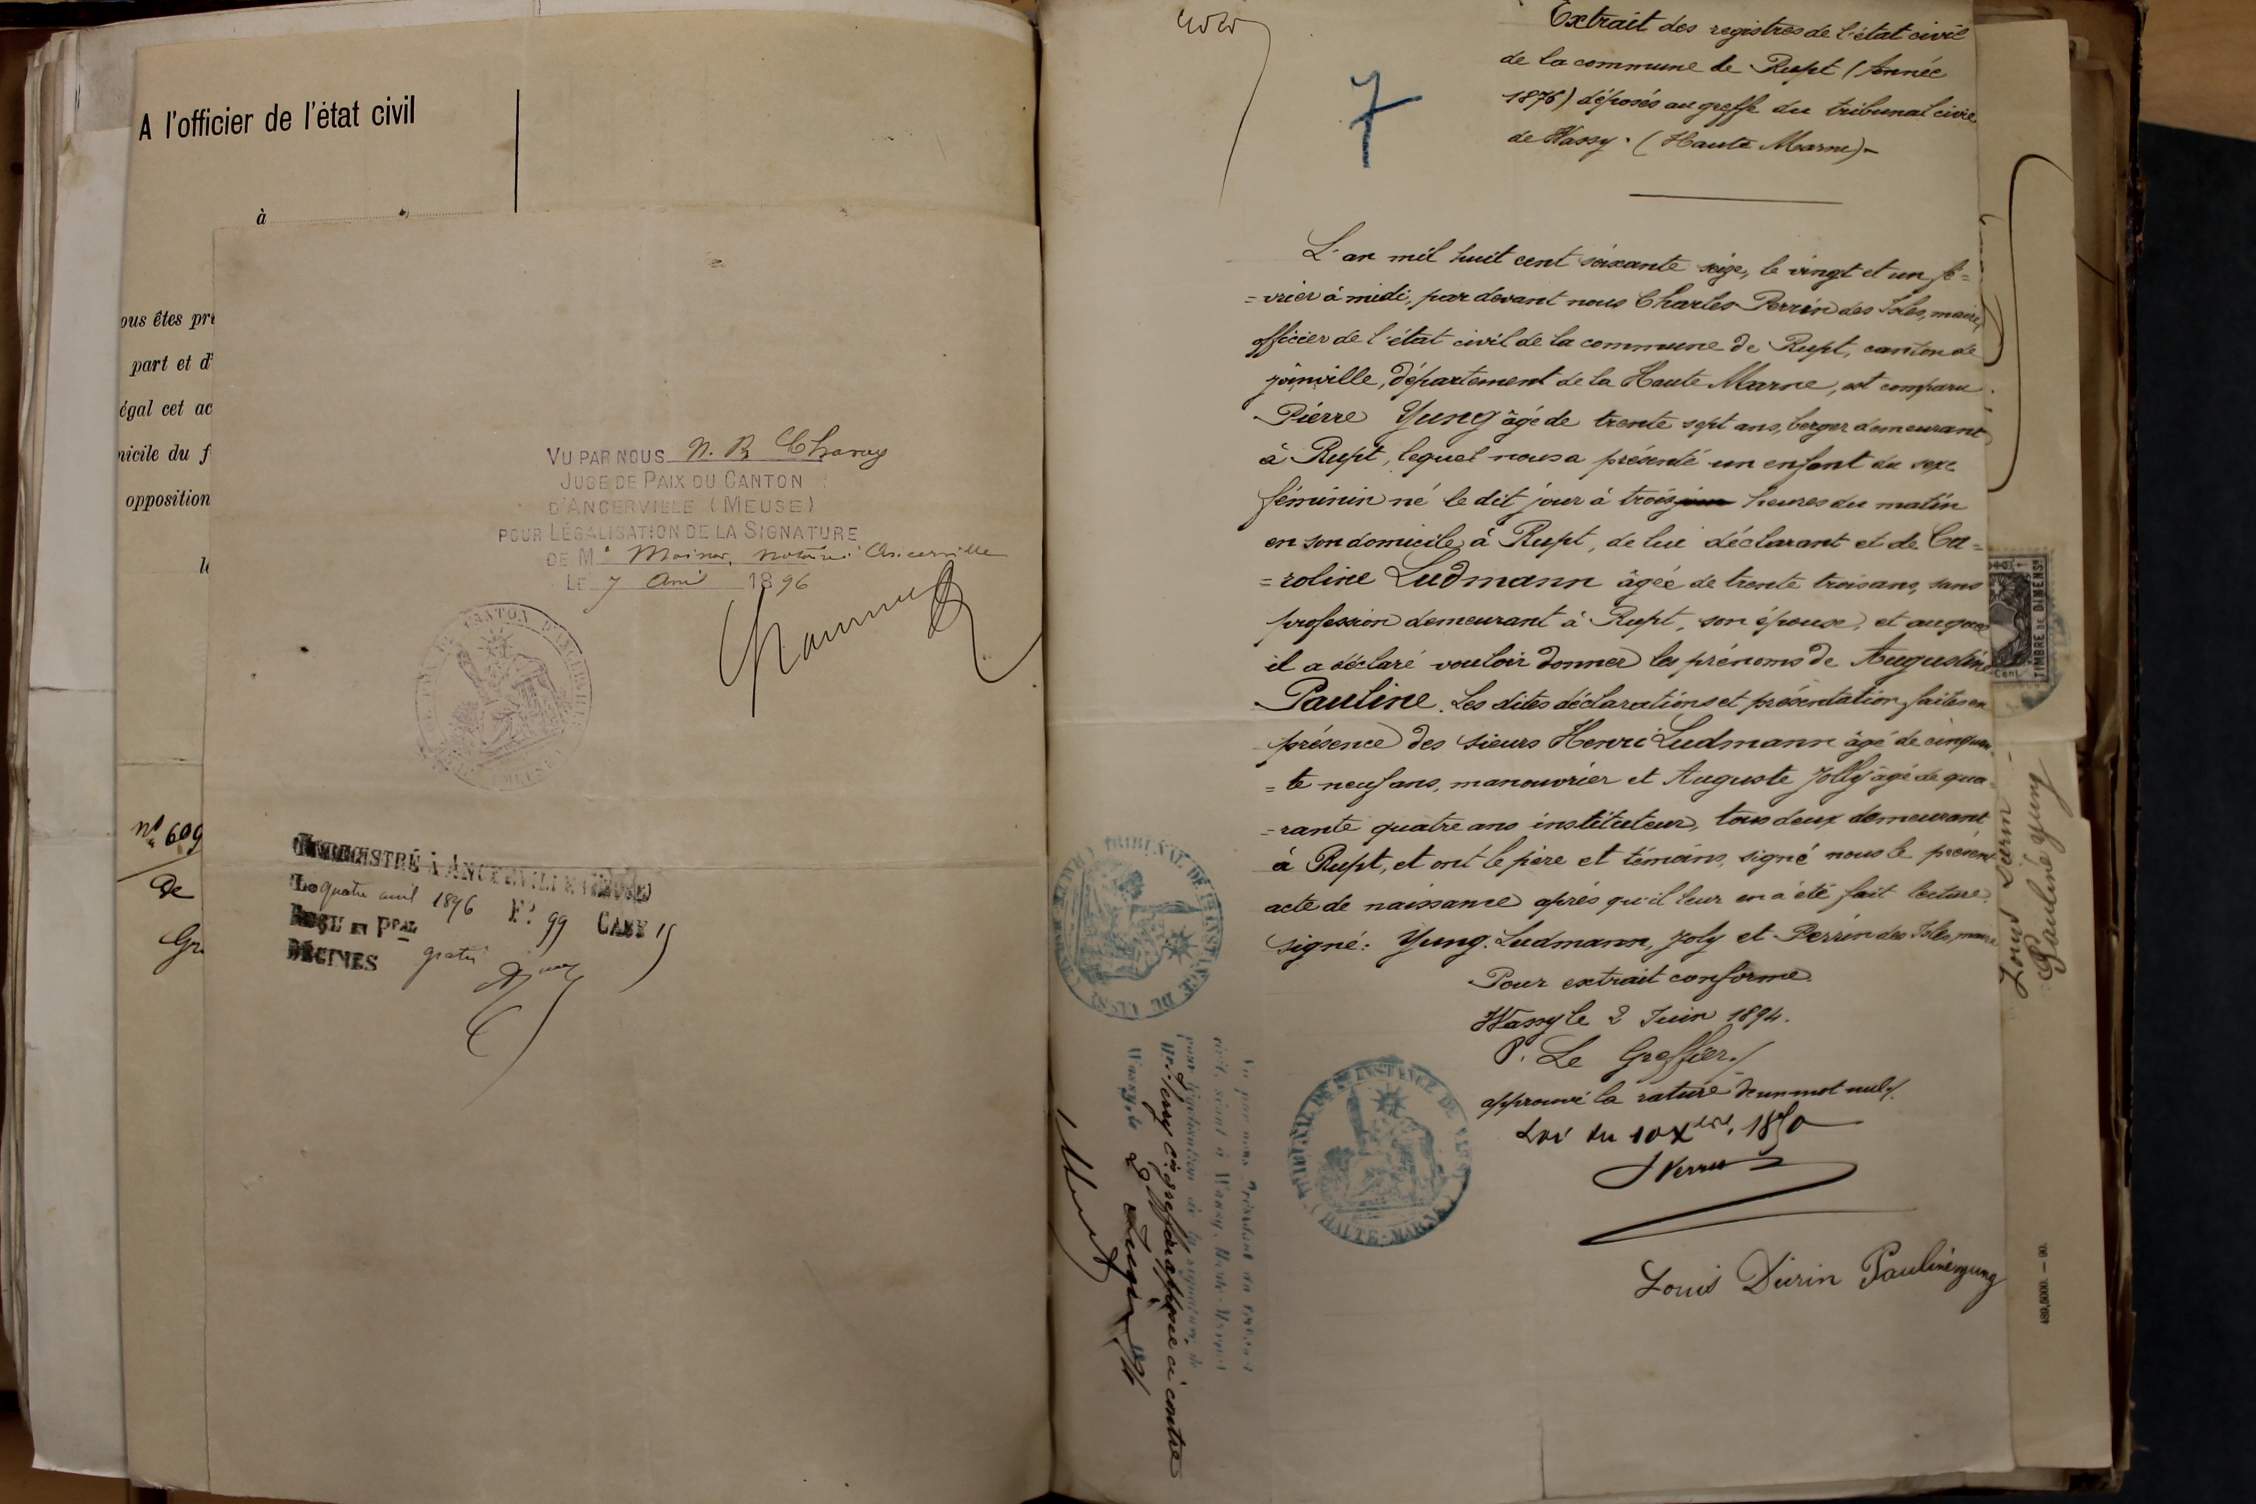 A l'officier de l'état civil
à
ous êtes pr
part et d'
égal cet ac
icile du f
opposition
VU PAR NOUS N. B.
JUGE DE PAIX DU CANTON
D'ANCERVILLE (MEUSE)
POUR LÉGALISATION DE LA SIGNATURE
DE Me notaire à Ancerville
LE 7 Avril 1896
nº 609
De
Gr
ENREGISTRÉ À ANCERVILLE (MEUSE)
Le quatre avril 1896 Fº 99 CASE 15
REÇU EN PPAL
DÉCIMES gratis
7
Extrait des registres de l'état civil
de la commune de Rupt (Année
1876) déposés au greffe du tribunal civil
de Wassy. (Haute Marne)-
L'an mil huit cent soixante seize, le vingt et un fé=
=vrier à midi, par devant nous Charles Perrin des Isles, maire,
officier de l'état civil de la commune de Rupt, canton de
joinville, département de la Haute Marne, est comparu
Pierre Yung âgé de trente sept ans, berger demeurant
à Rupt, lequel nous a présenté un enfant du sexe
féminin né le dit jour à trois heures du matin
en son domicile à Rupt, de lui déclarant et de Ca=
=roline Ludmann âgée de trente trois ans, sans
profession demeurant à Rupt, son épouse, et auquel
il a déclaré vouloir donner les prénoms de Augustine
Pauline. Les dites déclarations et présentation faites en
présence des sieurs Henri Ludmann âgé de cinquan-
=te neuf ans, manouvrier et Auguste Jolly âgé de qua-
-rante quatre ans instituteur, tous deux demeurant
à Rupt, et ont le père et témoins, signé nous le présent
acte de naissance après qu'il leur en a été fait lecture.
signé: Yung. Ludmann, Joly et Perrin des Isles, maire
Pour extrait conforme.
Wassy le 2 Juin 1894.
P. Le Greffier./
approuvé la rature d'un mot nul./.
Loi du 10 Xbre 1850
Louis Durin Pauline yung
TRIBUNAL DE 1re INSTANCE DE WASSY
(HAUTE-MARNE)
Vu par nous Président du tribunal
civil séant à Wassy, Haute-Marne
pour légalisation de la signature de
cis greffier apposée ci contre
Wassy, le 2 Juin 1894
TIMBRE DE DIMENS
Louis Durin
Pauline yung